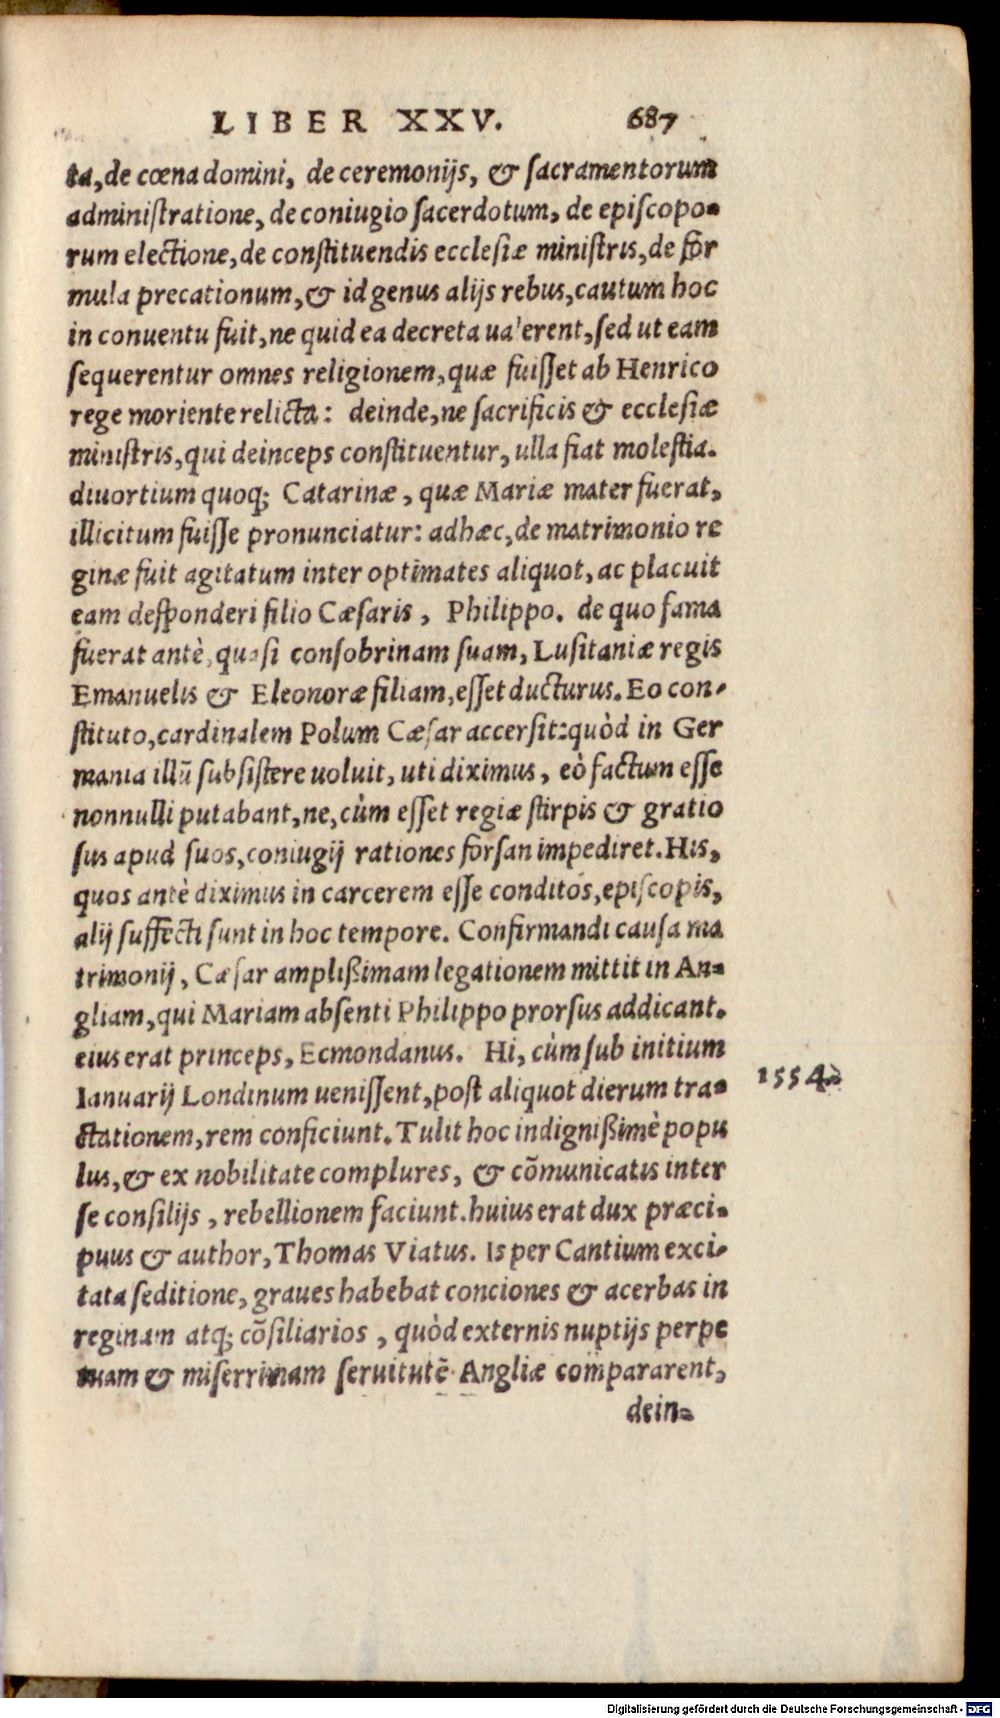 LIBER XXV. 687
ta, de cœna domini, de ceremonijs, & sacramentorum
administratione, de coniugio sacerdotum, de episcopo-
rum electione, de constituendis ecclesiæ ministris, de for
mula precationum, & id genus alijs rebus, cautum hoc
in conuentu fuit, ne quid ea decreta ualerent, sed ut eam
sequerentur omnes religionem, quæ fuisset ab Henrico
rege moriente relicta: deinde, ne sacrificis & ecclesiæ
ministris, qui deinceps constituentur, ulla fiat molestia.
diuortium quoq; Catarinæ, quæ Mariæ mater fuerat,
illicitum fuisse pronunciatur: adhæc, de matrimonio re
ginæ fuit agitatum inter optimates aliquot, ac placuit
eam desponderi filio Cæsaris, Philippo. de quo fama
fuerat antè, quasi consobrinam suam, Lusitaniæ regis
Emanuelis & Eleonoræ filiam, esset ducturus. Eo con-
stituto, cardinalem Polum Cæsar accersit: quòd in Ger
mania illũ subsistere uoluit, uti diximus, eò factum esse
nonnulli putabant, ne, cùm esset regiæ stirpis & gratio
sus apud suos, coniugij rationes forsan impediret. His,
quos antè diximus in carcerem esse conditos, episcopis,
alij suffecti sunt in hoc tempore. Confirmandi causa ma
trimonij, Cæsar amplißimam legationem mittit in An-
gliam, qui Mariam absenti Philippo prorsus addicant.
eius erat princeps, Ecmondanus. Hi, cùm sub initium
Ianuarij Londinum uenissent, post aliquot dierum tra- 1554.
ctationem, rem conficiunt. Tulit hoc indignißimè popu
lus, & ex nobilitate complures, & cõmunicatis inter
se consilijs, rebellionem faciunt. huius erat dux præci-
puus & author, Thomas Viatus. Is per Cantium exci-
tata seditione, graues habebat conciones & acerbas in
reginam atq; cõsiliarios, quòd externis nuptijs perpe
tuam & miserrimam seruitutẽ Angliæ compararent,
dein-
Digitalisierung gefördert durch die Deutsche Forschungsgemeinschaft - DFG